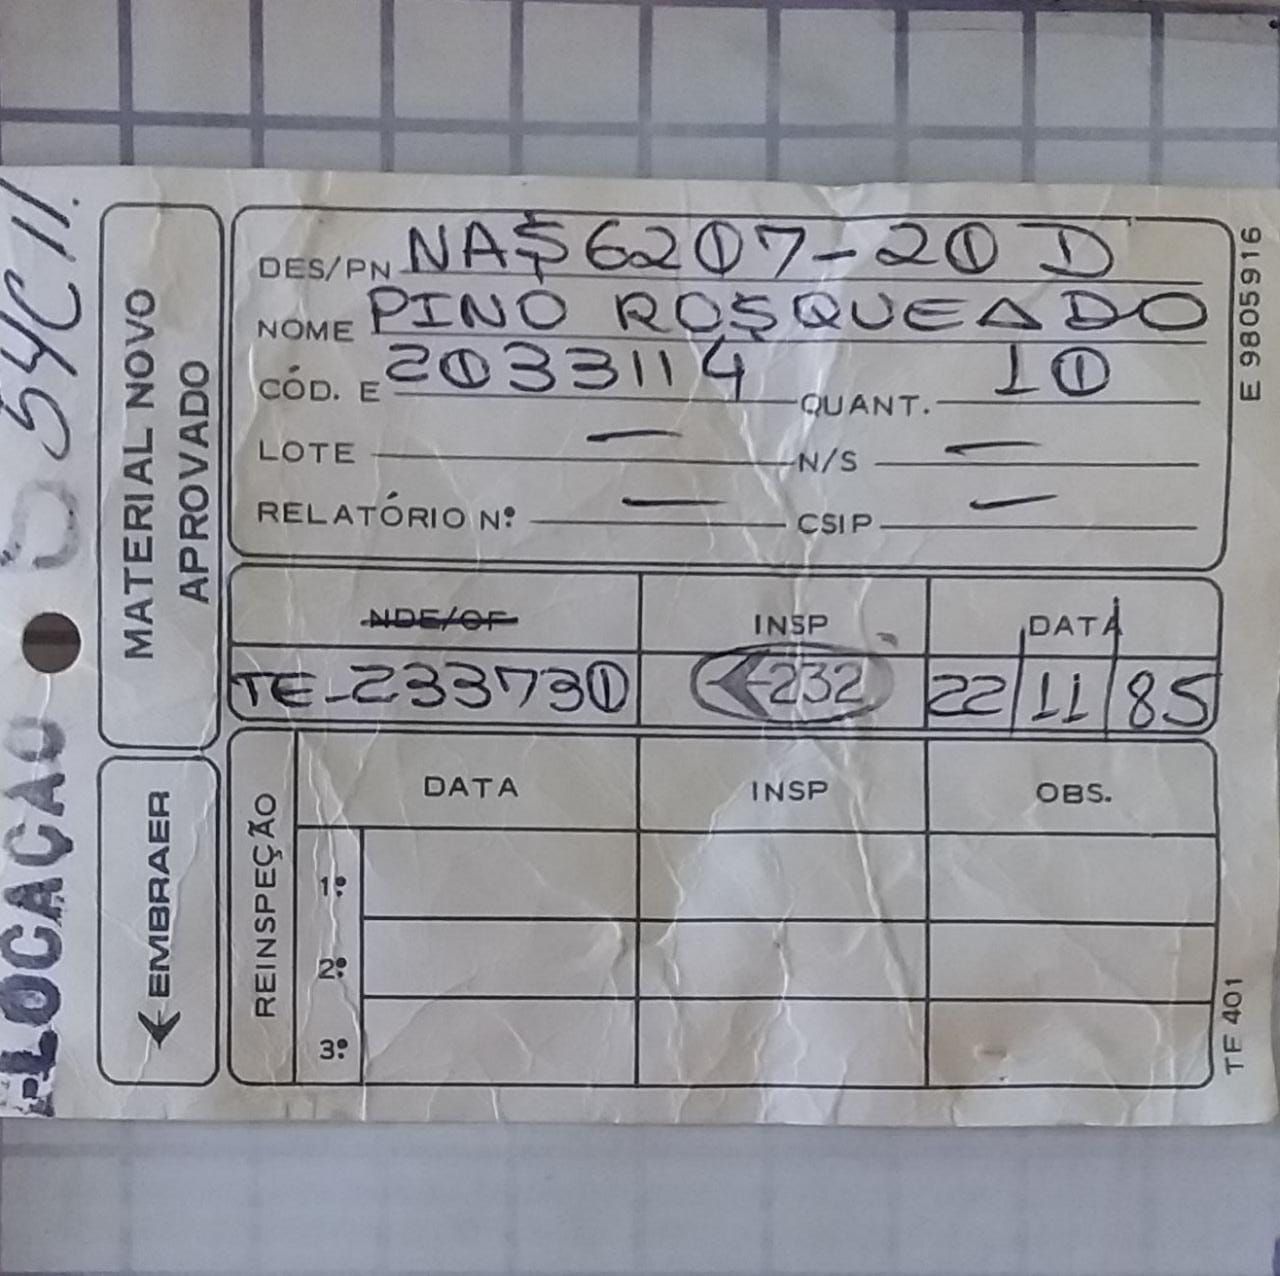 DES/PN NAS6207-20 D
NOME PINO ROSQUEADO
CÓD. E 2033114 QUANT. 10
LOTE — N/S —
RELATÓRIO Nº — CSIP —
NDE/OF INSP DATA
TE-233730 232 22/11/85
REINSPEÇÃO
DATA INSP OBS.
1º
2º
3º
MATERIAL NOVO
APROVADO
EMBRAER
LOCAÇÃO
E 9805916
TE 401